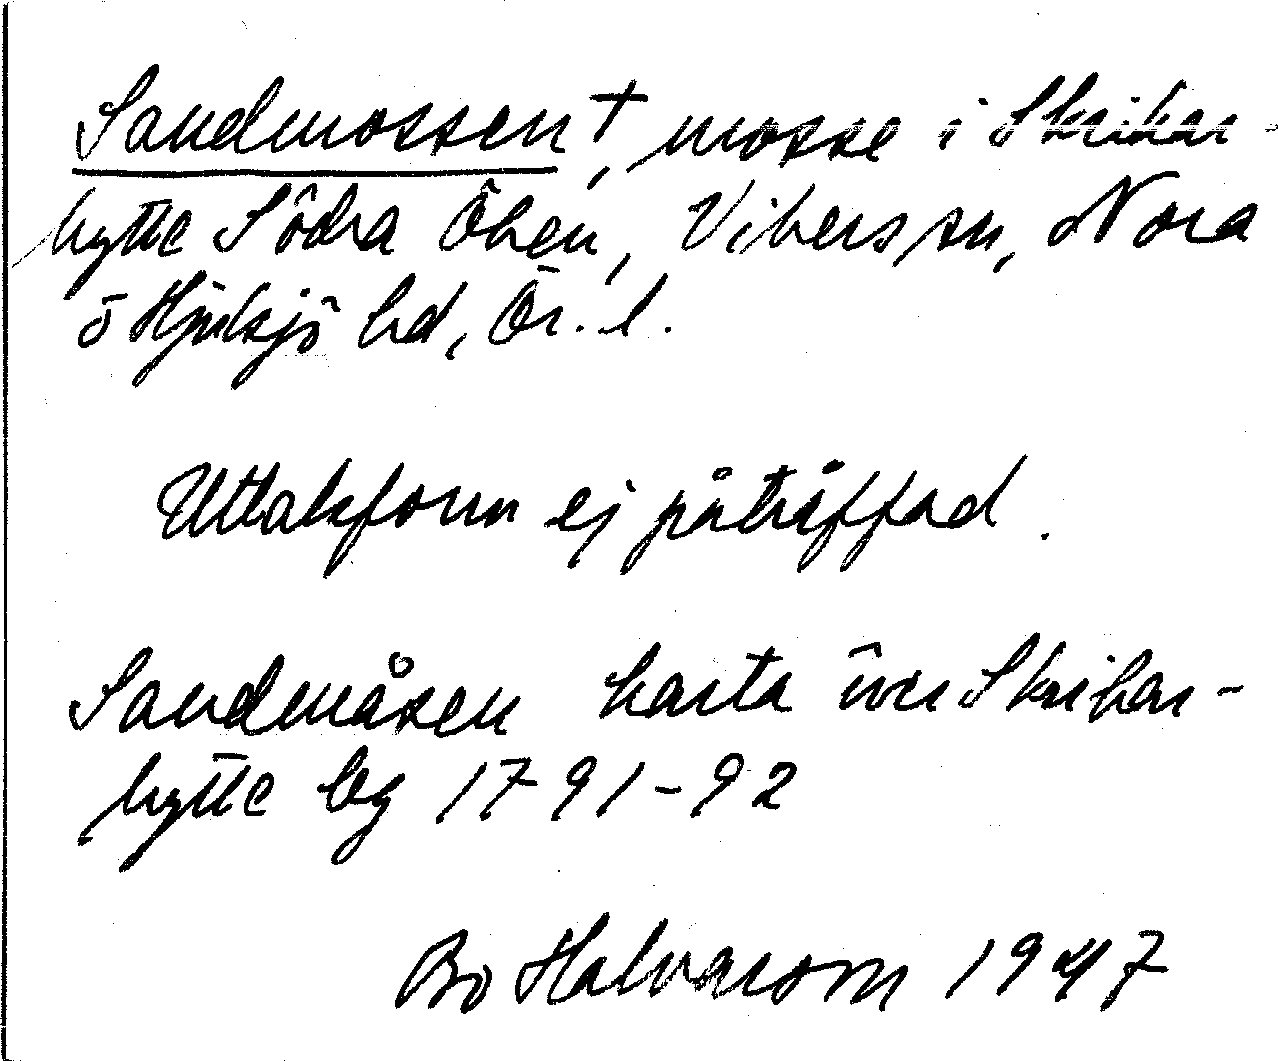 Sandmossen †, mosse i Skrikar-
hytte Södra Öken, Vikers sn, Nora
o Hjulsjö hd, Ör. l.
Uttalsform ej påträffad.
Sandmåsen karta över Skrikar-
hytte by 1791-92
Bo Halvarson 1947